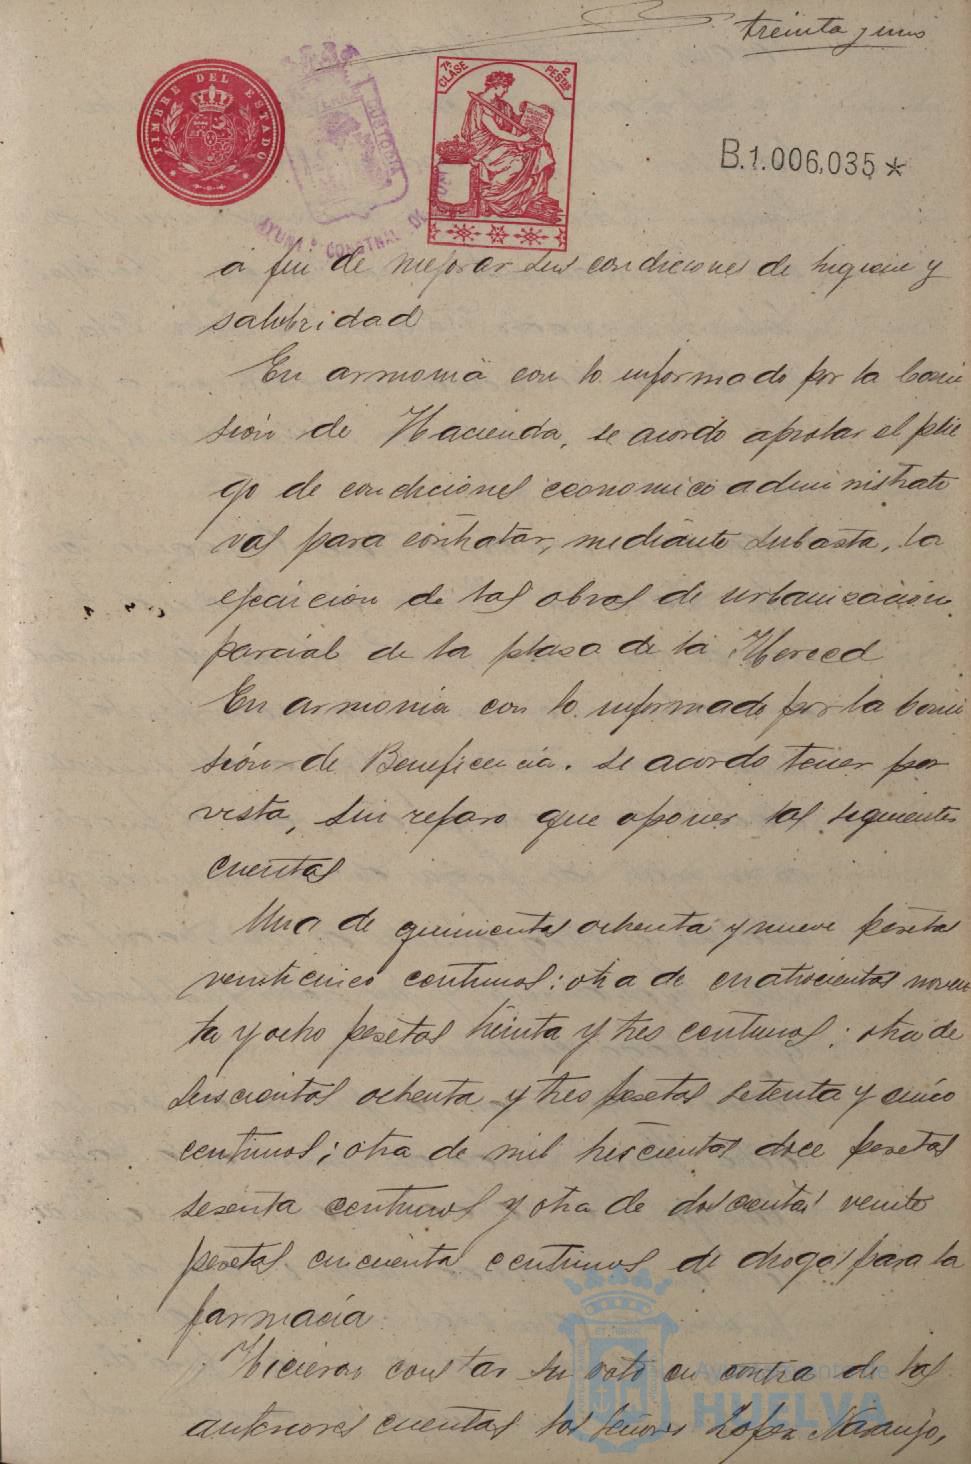 treinta y uno
TIMBRE DEL ESTADO
7ª CLASE
2 PESTAS
B.1.006,035*
AYUNTº CONSTNAL DE
a fin de mejorar sus condiciones de higiene y
salubridad
En armonia con lo informado por la Comi
sión de Hacienda, se acordo aprobar el plie
go de condiciones economico administrati
vas para contratar, mediante subasta, la
ejecución de las obras de urbanización
parcial de la plaza de la Merced
En armonia con lo informado por la Comi
sión de Beneficencia. se acordo tener por
vista, sin reparo que oponer las siguientes
cuentas
Una de quinientas ochenta y nueve pesetas
veinticinco centimos; otra de cuatrocientas noven
ta y ocho pesetas treinta y tres centimos; otra de
seiscientas ochenta y tres pesetas setenta y cinco
centimos; otra de mil trescientas doce pesetas
sesenta centimos y otra de doscientas veinte
pesetas cincuenta centimos de drogas para la
farmacia
Hicieron constar su voto en contra de las
anteriores cuentas los señores Lopez Naranjo,
Ayuntamiento de
HUELVA